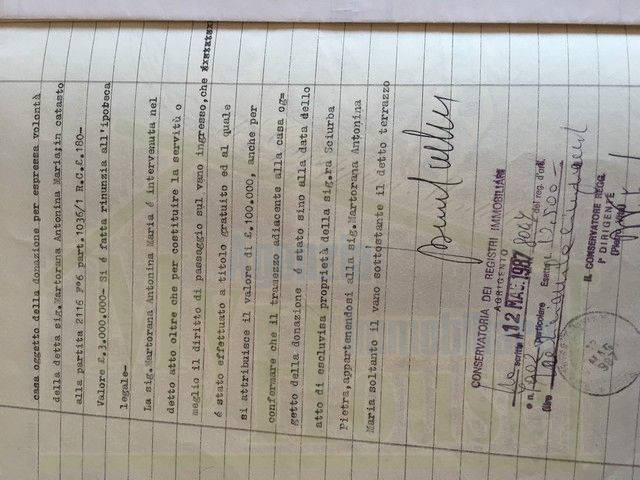 casa oggetto della donazione per espressa volontà
della detta sig.Martorana Antonina Maria:in catasto
alla partita 2116 F°6 part.1036/1 R.C.£.180-
Valore £.3.000.000- Si é fatta rinunzia all'ipoteca
legale-
La sig.Martorana Antonina Maria é intervenuta nel
detto atto oltre che per costituire la servitù o
meglio il diritto di passaggio sul vano ingresso,che
é stato effettuato a titolo gratuito ed al quale
si attribuisce il valore di £.100.000, anche per
confermare che il tramezzo adiacente alla casa og=
getto della donazione é stato sino alla data dello
atto di esclusiva proprietà della sig.ra Sciurba
Pietra,appartenendosi alla sig.Martorana Antonina
Maria soltanto il vano sottostante il detto terrazzo
CONSERVATORIA DEI REGISTRI IMMOBILIARI
AGRIGENTO
12 MAG. 1987
e n. particolare del reg. d'ord.
Esatte £. 10.500=
IL CONSERVATORE REGG.
1° DIRIGENTE